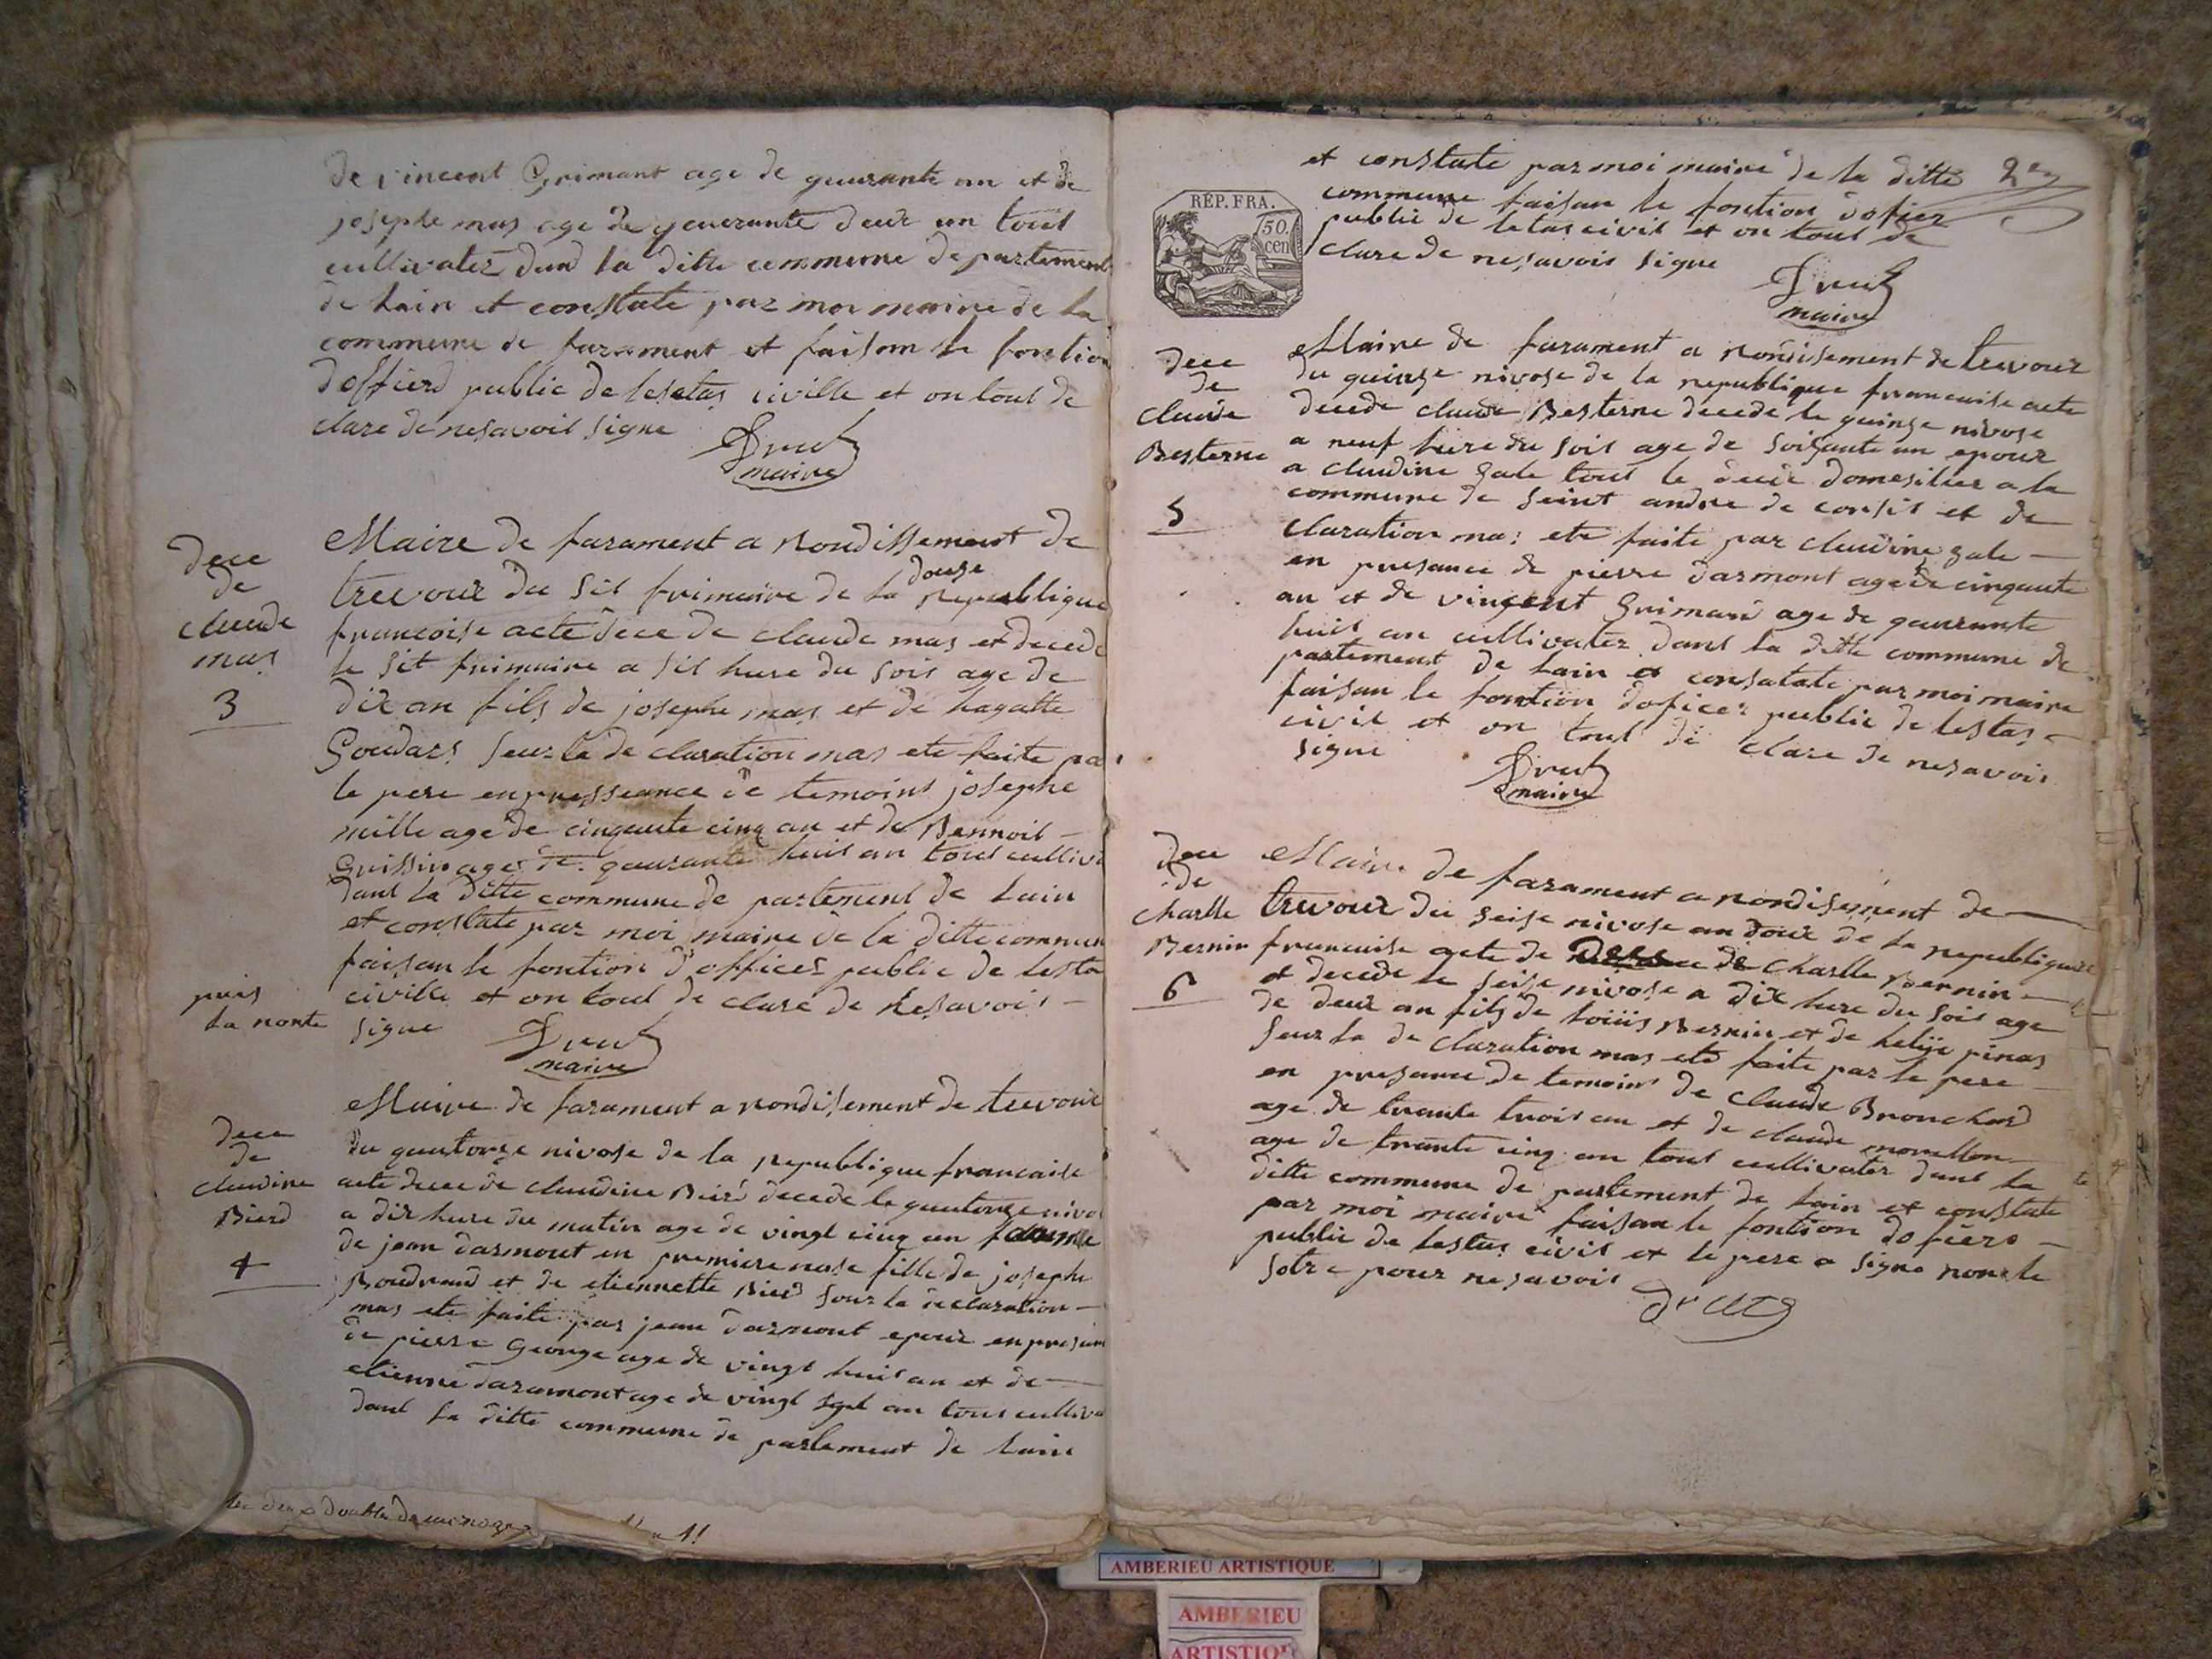 de vincent Grimant age de quarante an et de
josephe mas age de quarante deux an tout
cultivater dand la ditte commune departement
de lain et constate par moi maire de la
commune de farament et faison le fontion
dofficrd public de lesetas civille et on tout de
clare de nesavoit signe
Drut
maire
dece
de
claude
mas
3
Maire de farament a rondissement de
trevour du sit frimaire de la douze republique
francoise acte dece de claude mas et decede
le sit frimaire a sit hure du soir age de
dix an fils de josephe mas et de hagatte
Goudars seur la de claration mas ete faite par
le pere en presseance de temoint josephe
mille age de cinquante cinq an et de Bennoit
age de quarante huit an tout cultiva
dant la ditte commune de partement de lain
et constate par moi maire de la ditte commun
faisan le fontion dofficer public de lesta
civille et on tout de clare de nesavoir
signe
Drut
maire
puis
la nonte
dece
de
claudine
Bierd
4
Maire de farament a rondisement de trevour
du quatorze nivose de la republique francaise
acte dece de claudine Bierd decede le quatorze nivos
a dix hure du matin age de vingt cinq an famme
de jean darmont en premiere nose fille de josephe
Boudrand et de etiennette Bierd sour la declaration
mas ete faite par jean darmont epour en presian
de pierre George age de vingt huit an et de
etienne daramont age de vingt sept an tout cultiva
dant la ditte commune de partement de lain
2e
et constate par moi maire de la ditte
commune faisan le fontion dofier
public de letas civil et on tout de
clare de nesavoir signe
Drut
maire
REP. FRA.
50.
cen
dece
de
claude
Besterne
5
Maire de farament a rondisement de trevour
du quinze nivose de la republique francaise acte
decede claude Besterne decede le quinze nivose
a neuf hure du soir age de soisante an epour
a claudine gale tout le deux domesilier a la
commune de seint andre de corsit et de
claration ma; ete faite par claudine gale
en presance de pierre darmont age de cinquante
an et de vincent Grimand age de quarrante
huit an cultivater dant la ditte commune de
partement de lain et consatate par moi maire
faisan le fontion doficer public de lestas
civil et on tout de clare de nesavoir
signe
Drut
maire
dece
de
charlle
Bernin
6
Maire de farament a rondisement de
trevour du seise nivose an douze de la republique
francaise acte de de charlle Bernin
et decede le seise nivose a dix hure du soir age
de deux an fils de loüis Bernin et de helije pinas
seur la de claration mas ete faite par le pere
en presance de temoins de claude Bronchard
age de trante trois an et de claude morellon
age de trante cinq an tout cultivater dant la
ditte commune de partement de lain et constate
par moi maire faisan le fontion dofiers
public de lestas civil et le pere a signe non le
sotre pour nesavoir
drut
AMBERIEU ARTISTIQUE
AMBERIEU
ARTISTIQUE